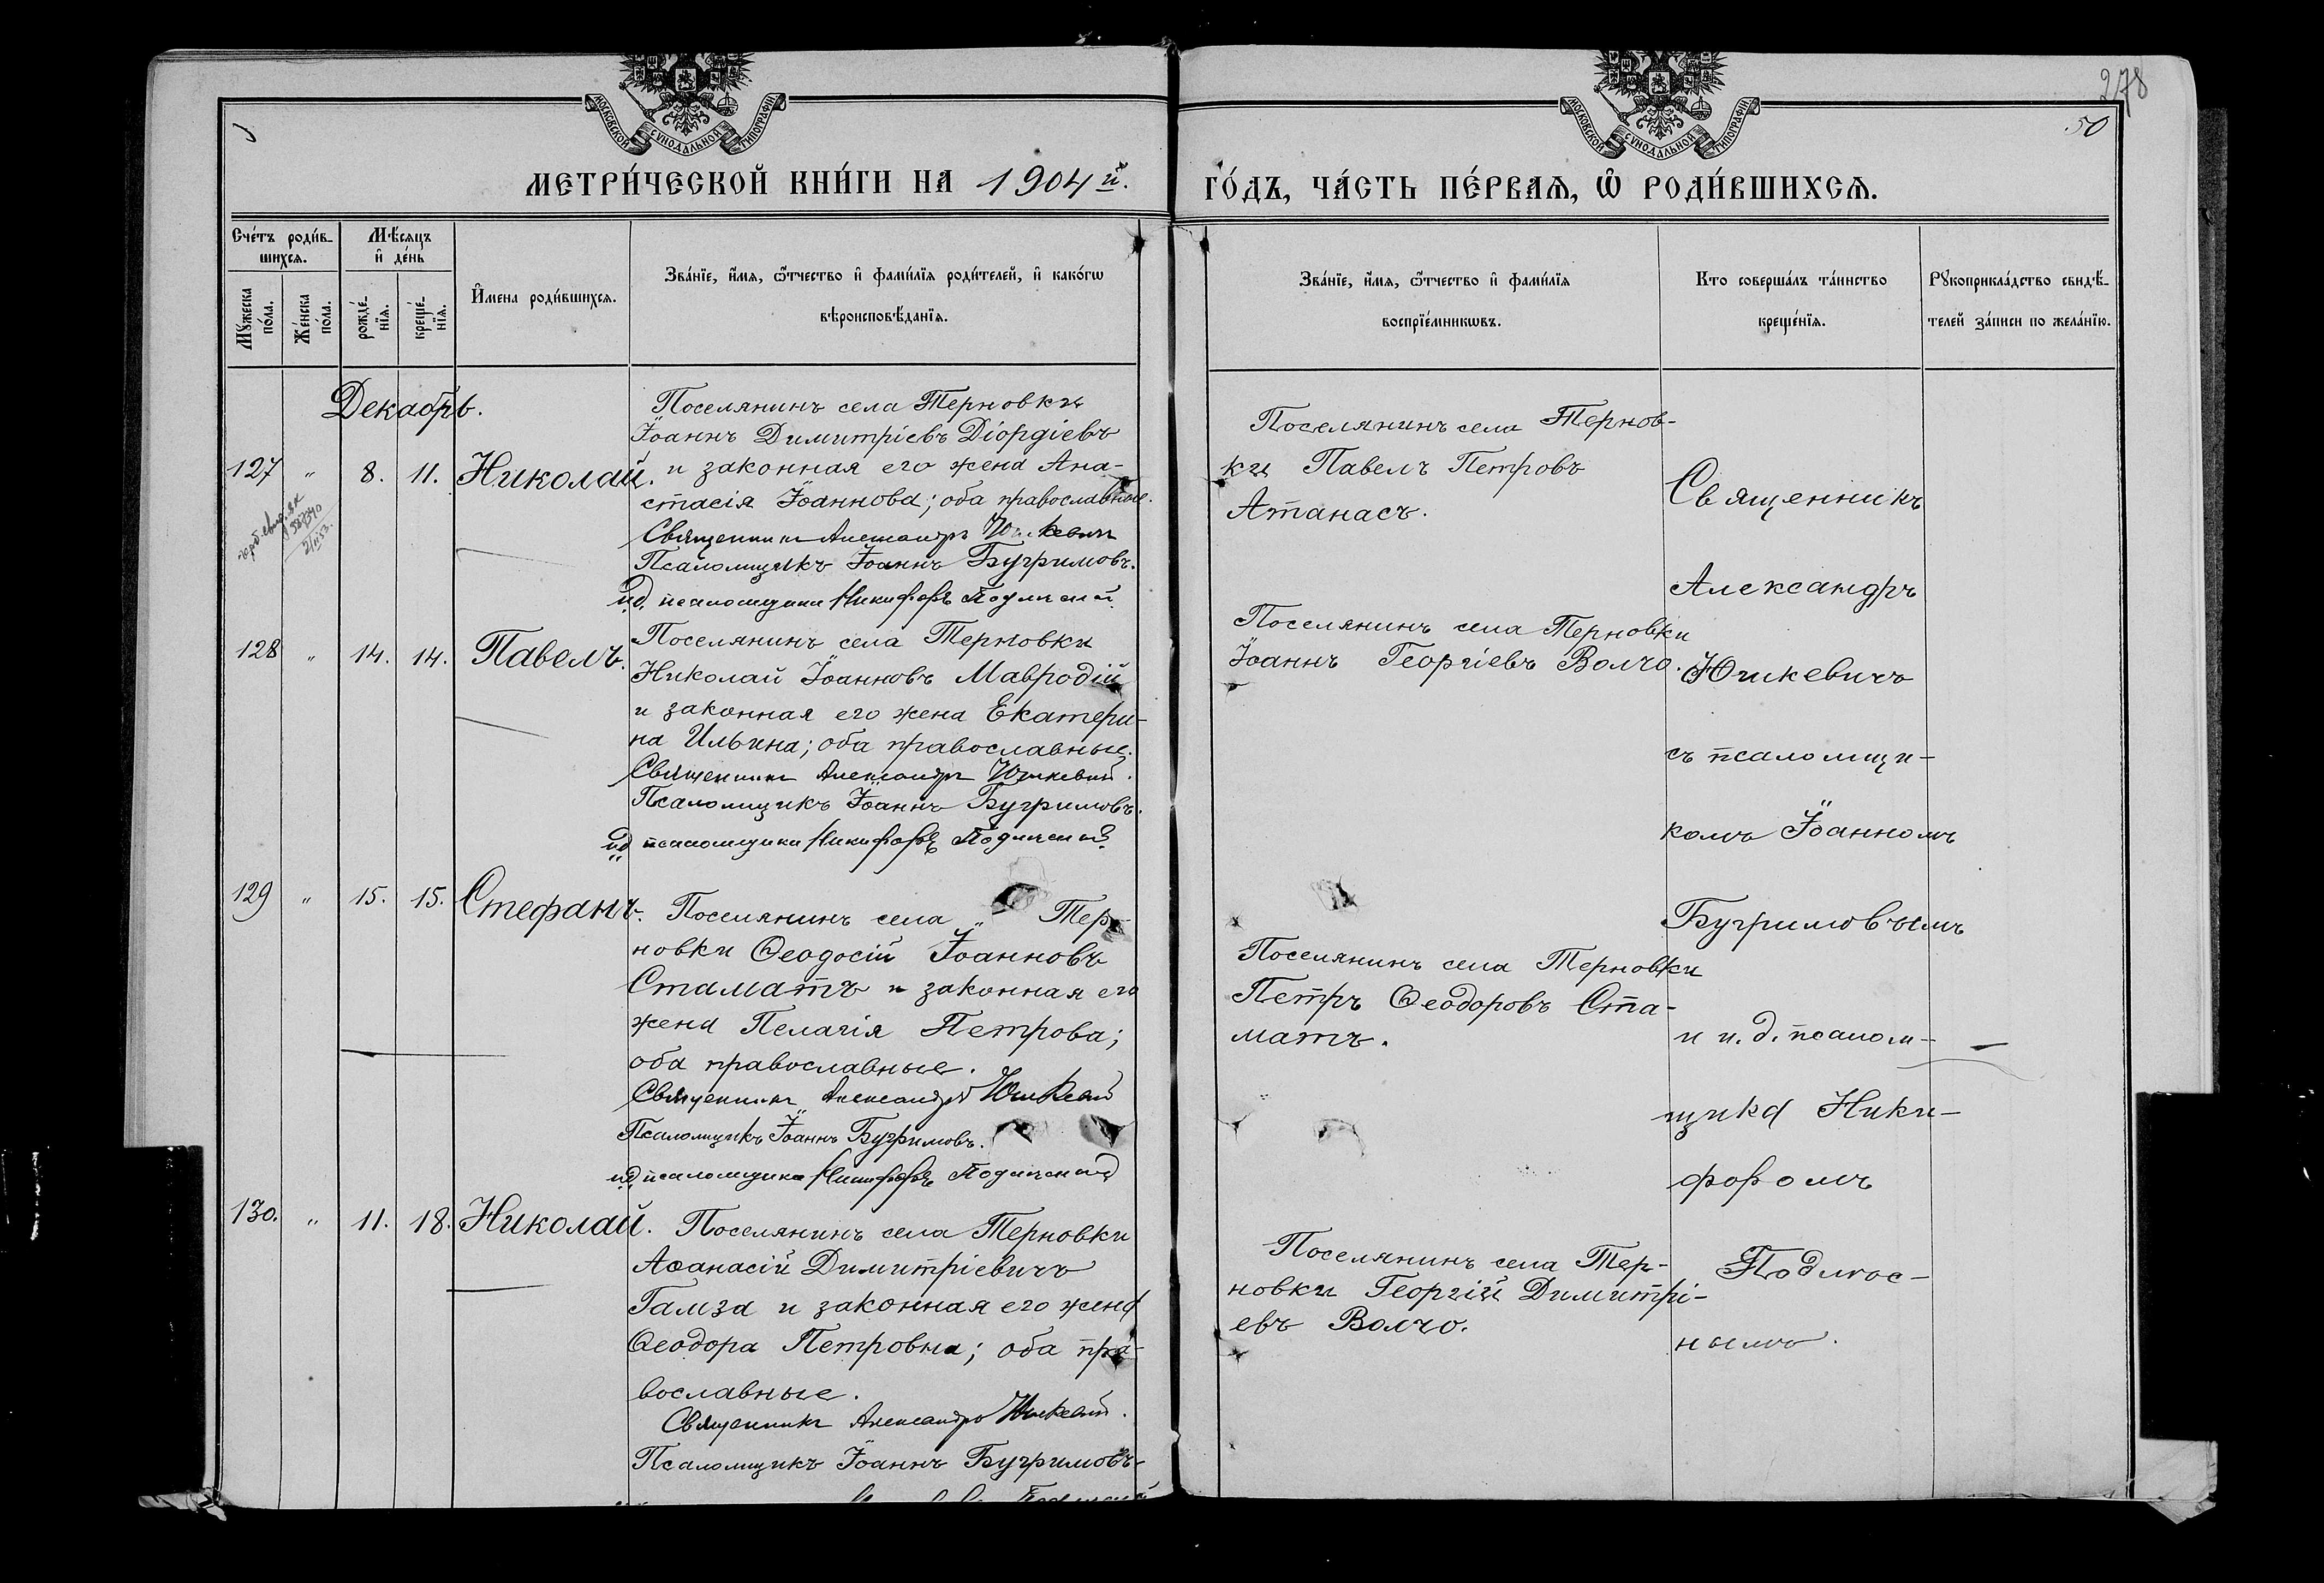 278
50
МОСКОВСКОЙ СѴНОДАЛЬНОЙ ТИПОГРАФІИ
МОСКОВСКОЙ СѴНОДАЛЬНОЙ ТИПОГРАФІИ
МЕТРИ́ЧЕСКОЙ КНИ́ГИ НА 1904й.
ГО́ДЪ, ЧА́СТЬ ПЕ́РВАѦ, Ѡ҆ РОДИ́ВШИХСѦ.
Сче́тъ роди́в-
шихсѧ.
Мꙋ́жеска по́ла.
Же́нска по́ла.
Мѣ́сяцъ
и҆ де́нь
рожде́-
нїѧ.
креще́-
нїѧ.
И҆мена роди́вшихсѧ.
Зва́нїе, и҆́мѧ, ѻ҆́тчество и҆ фами́лїѧ роди́телей, и҆ како́гѡ
вѣроисповѣ́данїѧ.
Зва́нїе, и҆́мѧ, ѻ҆́тчество и҆ фами́лїѧ
воспрїе́мникѡвъ.
Кто соверша́лъ та́инство
креще́нїѧ.
Рꙋкоприкла́дство свидѣ́-
телей за́писи по жела́нїю.
Декабрь.
127 " 8. 11. Николай.
Поселянинъ села Терновки
Іоаннъ Димитріевъ Діордіевъ
и законная его жена Ана-
стасія Іоаннова; оба православные.
Священникъ Александръ Юшкевич
Псаломщикъ Іоаннъ Бугримовъ.
и.д. псаломщика Никифоръ Подлесный
Поселянинъ села Тернов-
ки Павелъ Петровъ
Атанасъ.
128 " 14. 14. Павелъ.
Поселянинъ села Терновки
Николай Іоанновъ Мавродій
и законная его жена Екатери-
на Ильина; оба православные.
Священникъ Александръ Юшкевич.
Псаломщикъ Іоаннъ Бугримовъ.
и.д. псаломщика Никифоръ Подлесный
Поселянинъ села Терновки
Іоаннъ Георгіевъ Волчо.
129 " 15. 15. Стефанъ.
Поселянинъ села " Тер-
новки Ѳеодосій Іоанновъ
Стаматъ и законная его
жена Пелагія Петрова;
оба православные.
Священникъ Александръ Юшкевич
Псаломщикъ Іоаннъ Бугримовъ.
и.д. псаломщика Никифоръ Подлесный
Поселянинъ села Терновки
Петръ Ѳеодоровъ Ста-
матъ.
130. " 11. 18. Николай.
Поселянинъ села Терновки
Аѳанасій Димитріевичъ
Гамза и законная его жена
Ѳеодора Петровна; оба пра-
вославные.
Священникъ Александръ Юшкевич.
Псаломщикъ Іоаннъ Бугримовъ-
Поселянинъ села Тер-
новки Георгій Димитрі-
евъ Волчо.
Священникъ
Александръ
Юшкевичъ
съ псаломщи-
комъ Іоанномъ
Бугримовымъ
и и.д. псалом-
щика Ники-
форомъ
Подлес-
нымъ.